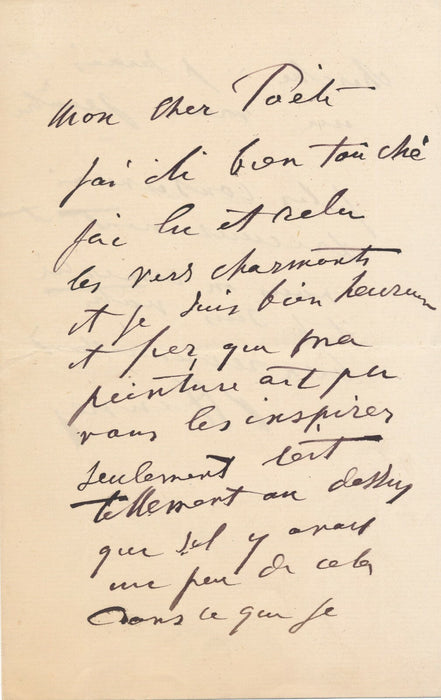 mon cher Poète
j'ai été bien touché
j'ai lu et relu
les vers charmants
et je suis bien heureux
et fier, que ma
peinture ait pu
vous les inspirer
seulement c'est
tellement au dessus
que s'il y avait
une peu de cela
dans ce que je